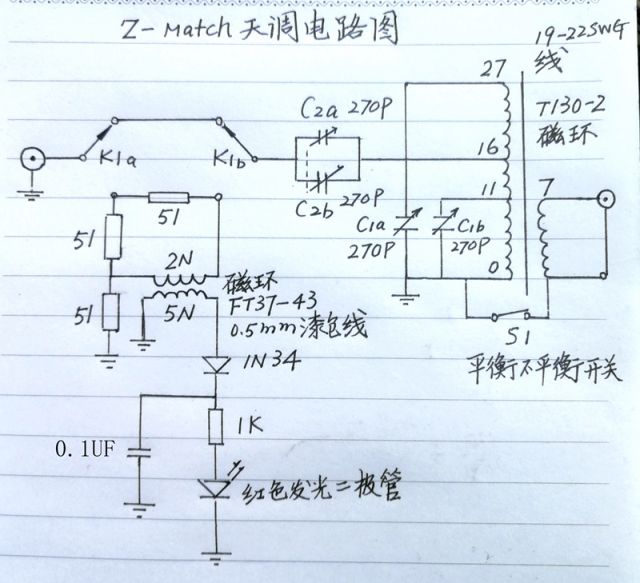 Z-Match天调电路图
19-22SWG
线
27
C2a 270P
T130-2
磁环
K1a
K1b
16
C2b 270P
11
7
51
C1a
270P
C1b
270P
51
2N
0
磁环
FT37-43
0.5mm漆包线
51
5N
S1
平衡不平衡开关
1N34
1K
0.1UF
红色发光二极管